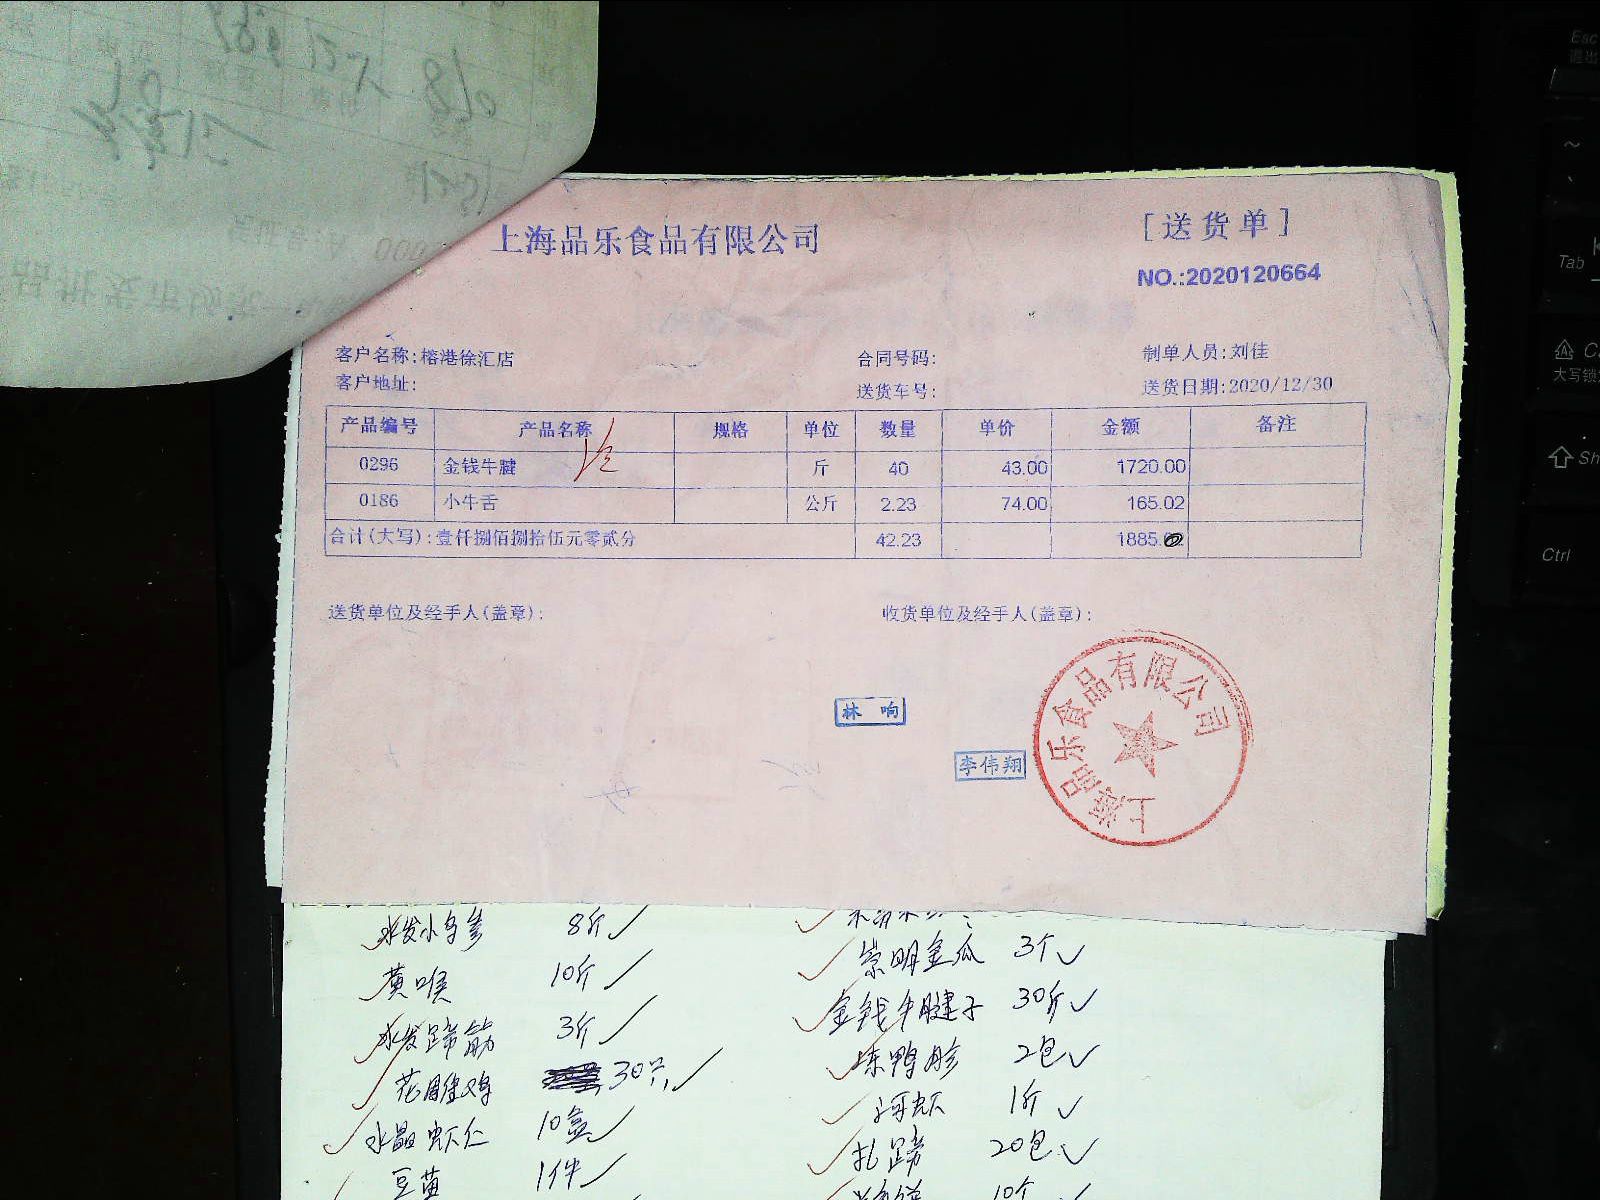 上海品乐食品有限公司
[送货单]
NO.:2020120664
客户名称:榕港徐汇店 合同号码: 制单人员:刘佳
客户地址: 送货车号: 送货日期:2020/12/30
产品编号 产品名称 规格 单位 数量 单价 金额 备注
0296 金钱牛腱 斤 40 43.00 1720.00
0186 小牛舌 公斤 2.23 74.00 165.02
合计(大写):壹仟捌佰捌拾伍元零贰分 42.23 1885.
送货单位及经手人(盖章): 收货单位及经手人(盖章):
林响
李伟翔
上海品乐食品有限公司
水发小乌参 8斤
黄喉 10斤
水发蹄筋 3斤
花雕鸡 30只
水晶虾仁 10盒
豆苗 1件
崇明金瓜 3个
金钱牛腱子 30斤
冻鸭胗 2包
河虾 1斤
扎蹄 20包
10个
Esc
Tab
Ctrl